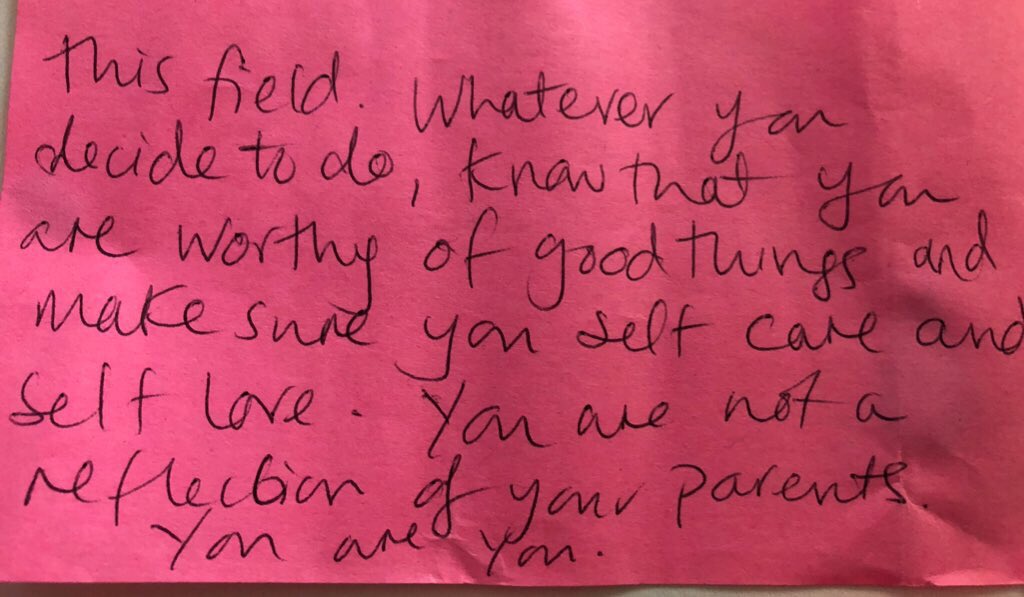 this field. Whatever you
decide to do, know that you
are worthy of good things and
make sure you self care and
self love. You are not a
reflection of your parents.
You are you.